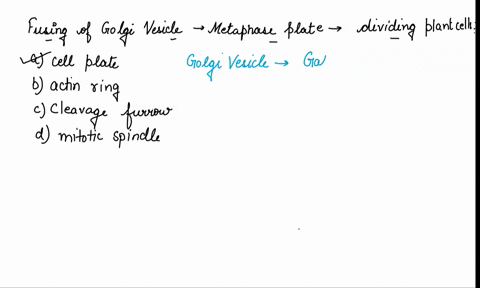 Fusing of Golgi Vesicle → Metaphase plate → dividing plant cells.
a) cell plate
Golgi Vesicle → Ga
b) actin ring
c) Cleavage furrow
d) mitotic spindle